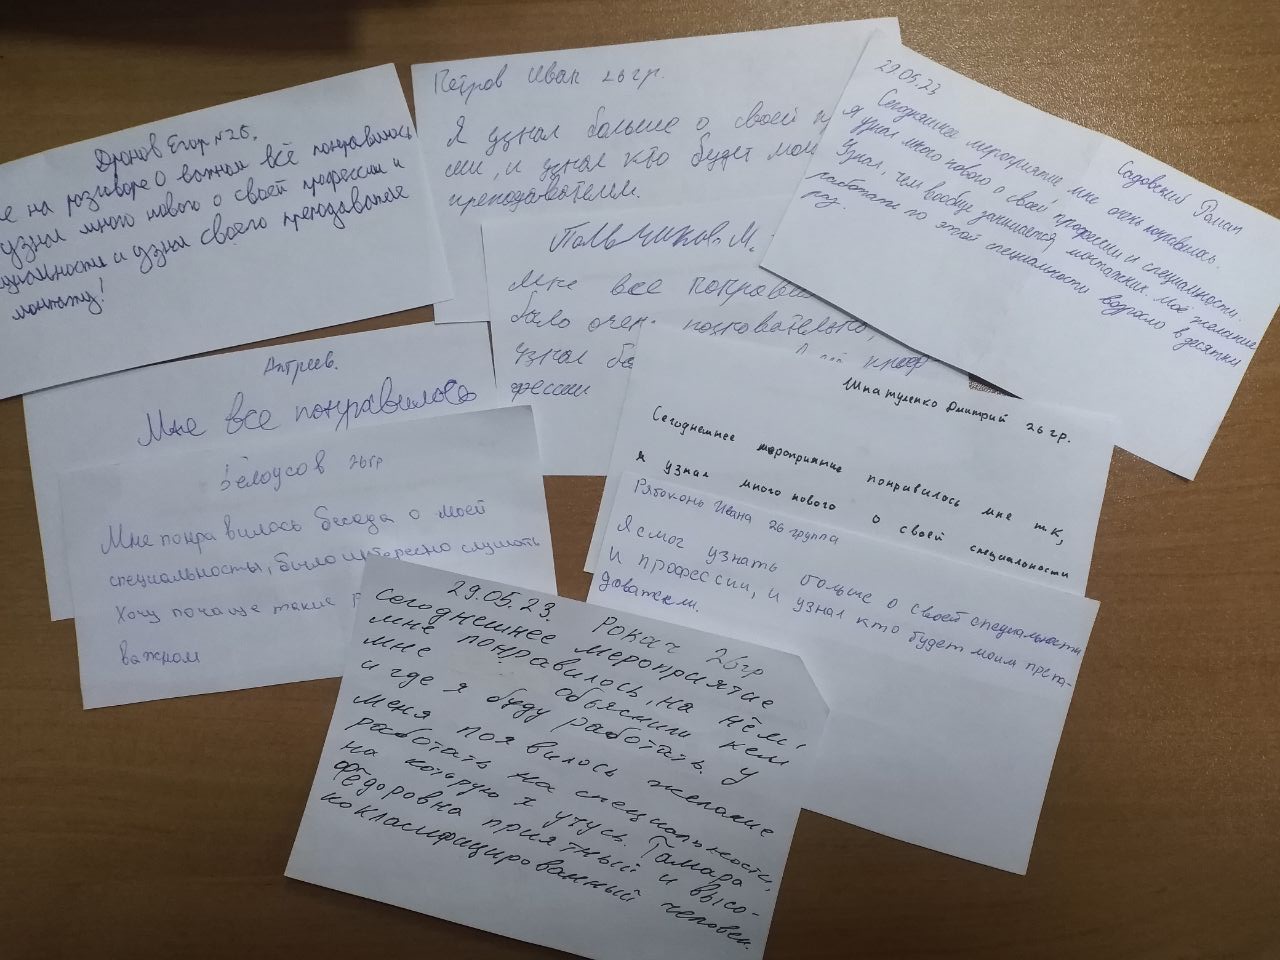 Дронов Егор №26.
на разговоре о важном всё понравилось
узнал много нового о своей профессии и
и узнал своего преподавателя
монтажу!
Петров Иван 26 гр.
Я узнал больше о своей
и узнал кто будет моим
преподавателем.
29.05.23
Садовский Роман
Сегоднешнее мероприятие мне очень понравилось.
Я узнал много нового о своей профессии и специальности.
Узнал, чем вообще занимается монтажник. Моё желание
работать по этой специальности возросло в десятки
раз.
М.
Мне все понрави
было очень познавательно,
Узнал
фессии
Андреев.
Мне все понравилось
Белоусов 26гр
Мне понравилась беседа о моей
специальносты, было интересно слушать
Хочу почаще такие
важном
Шпатуленко Дмитрий 26 гр.
Сегоднешнее мероприятие понравилось мне тк,
я узнал много нового о своей специальности
Рябоконь Ивана 26 группа
Я смог узнать больше о своей специальности
и профессии, и узнал кто будет моим препо-
дователем.
29.05.23. Рокач 26гр
Сегоднешнее мероприятие
мне понравилось, на нём,
мне объяснили кем
и где я буду работать. У
меня появилось желание
работать на специальности,
на которую я учусь. Тамара
Фёдоровна приятный и высо-
ко класифицированный человек.